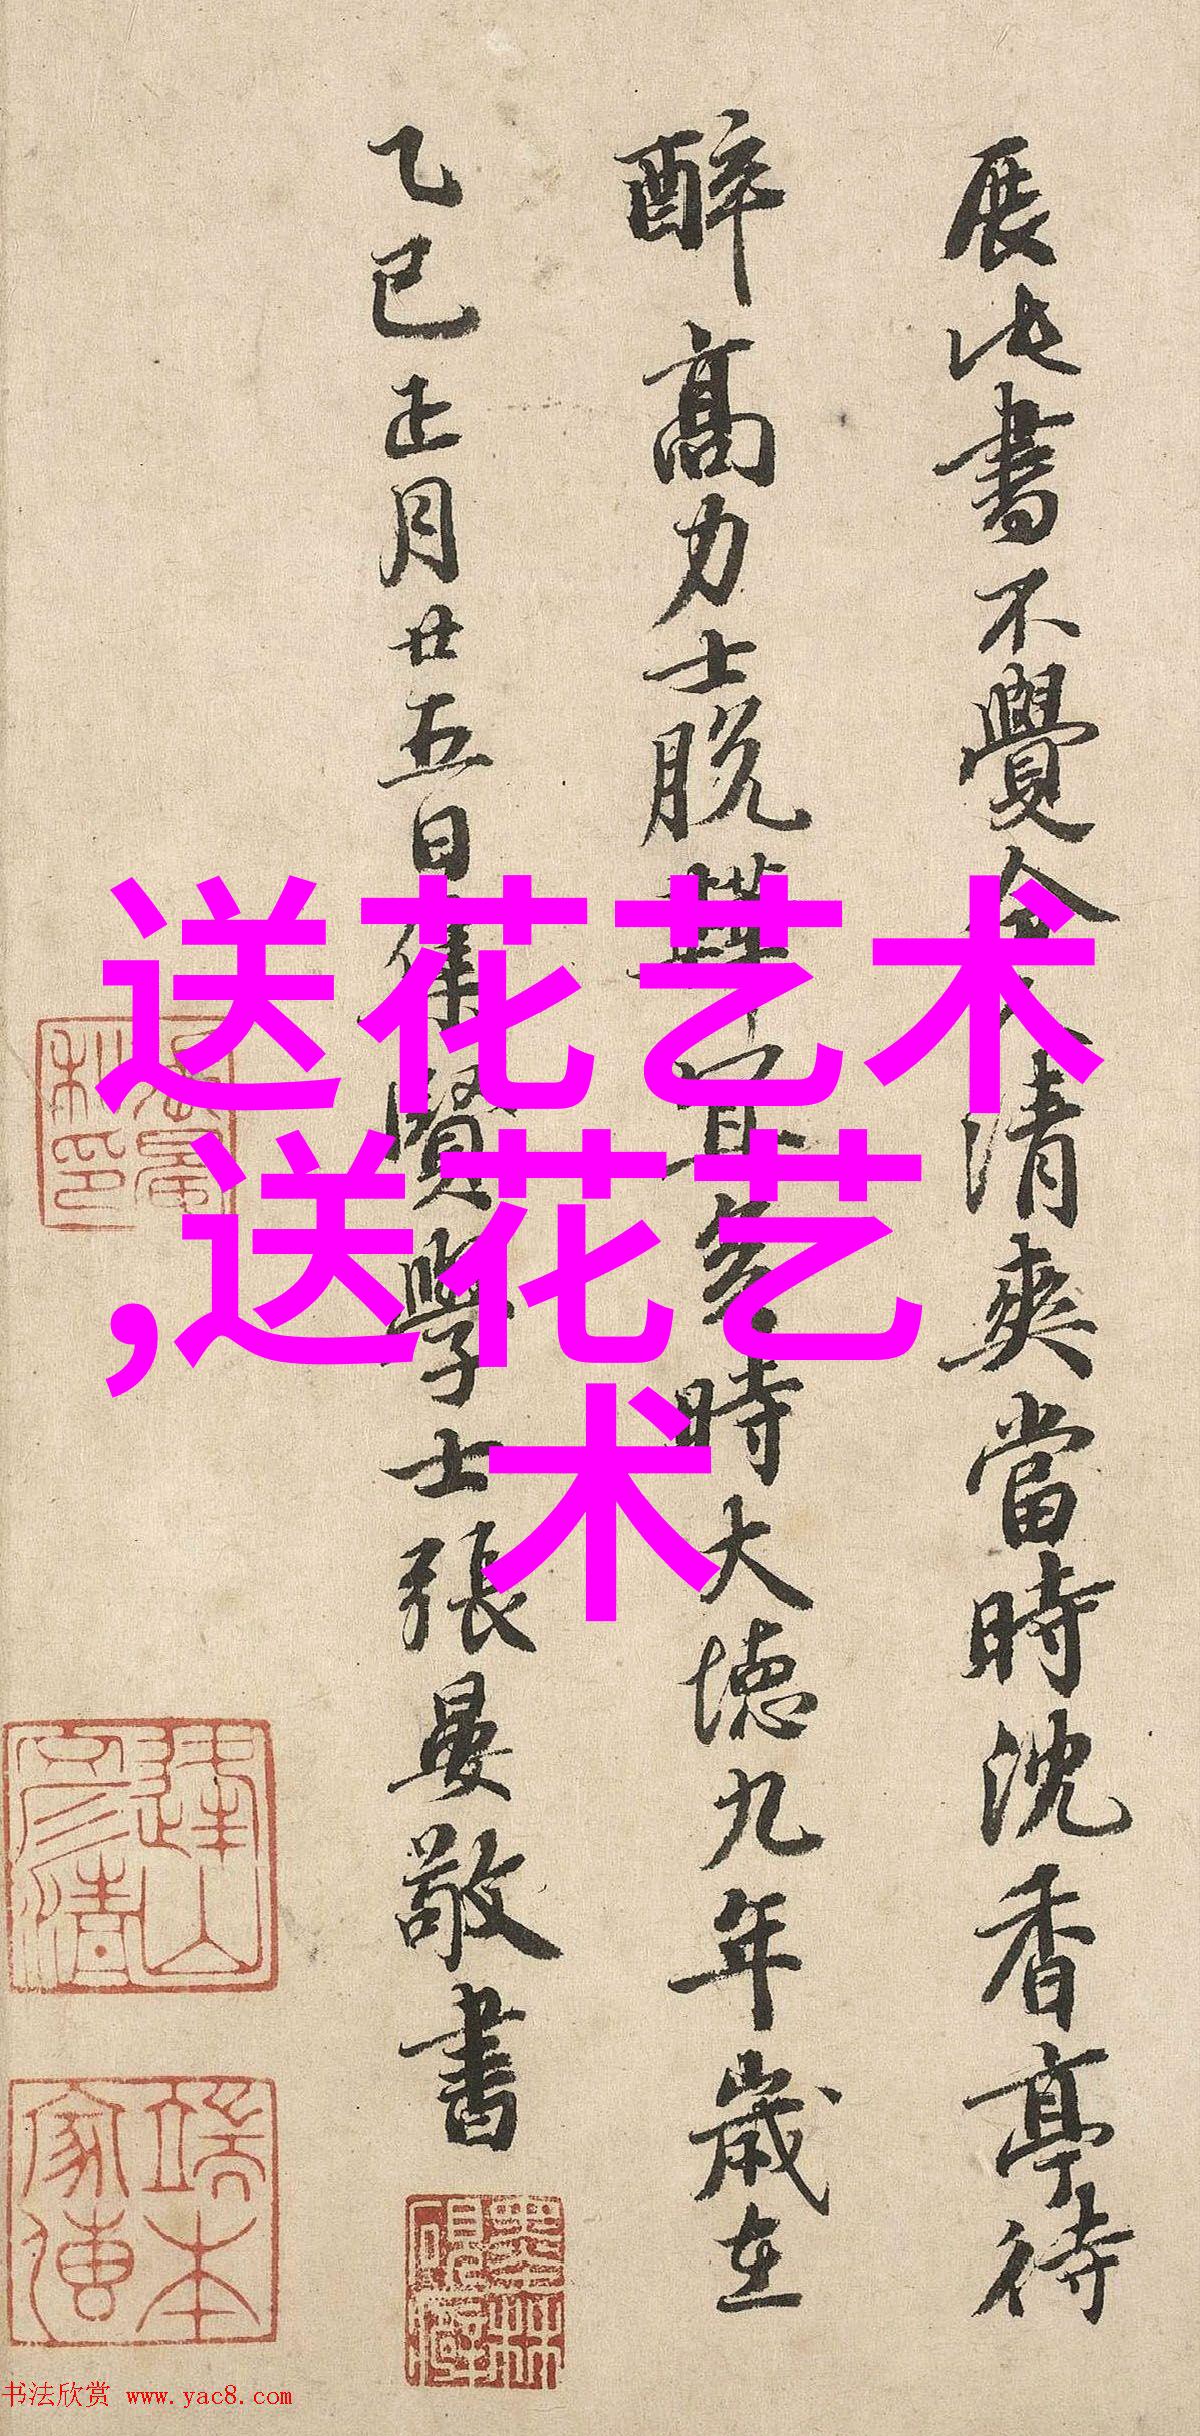 展此書不覺令人清爽當時沈香亭待
醉高力士脱鞾宜矣時大德九年歲在
乙巳正月廿五日集賢學士張晏敬書
送花艺术
,送花艺
术
书法欣赏 www.yac8.com